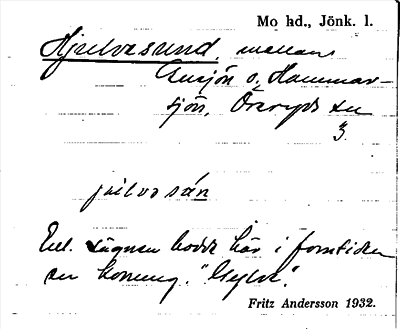 Mo hd., Jönk. l.
Hjulvasund, mellan
Ensjön o. Hammar-
sjön, Öreryds sn
3.
julvasún
Enl. sägnen bodde här i forntiden
en konung. "Gylve".
Fritz Andersson 1932.